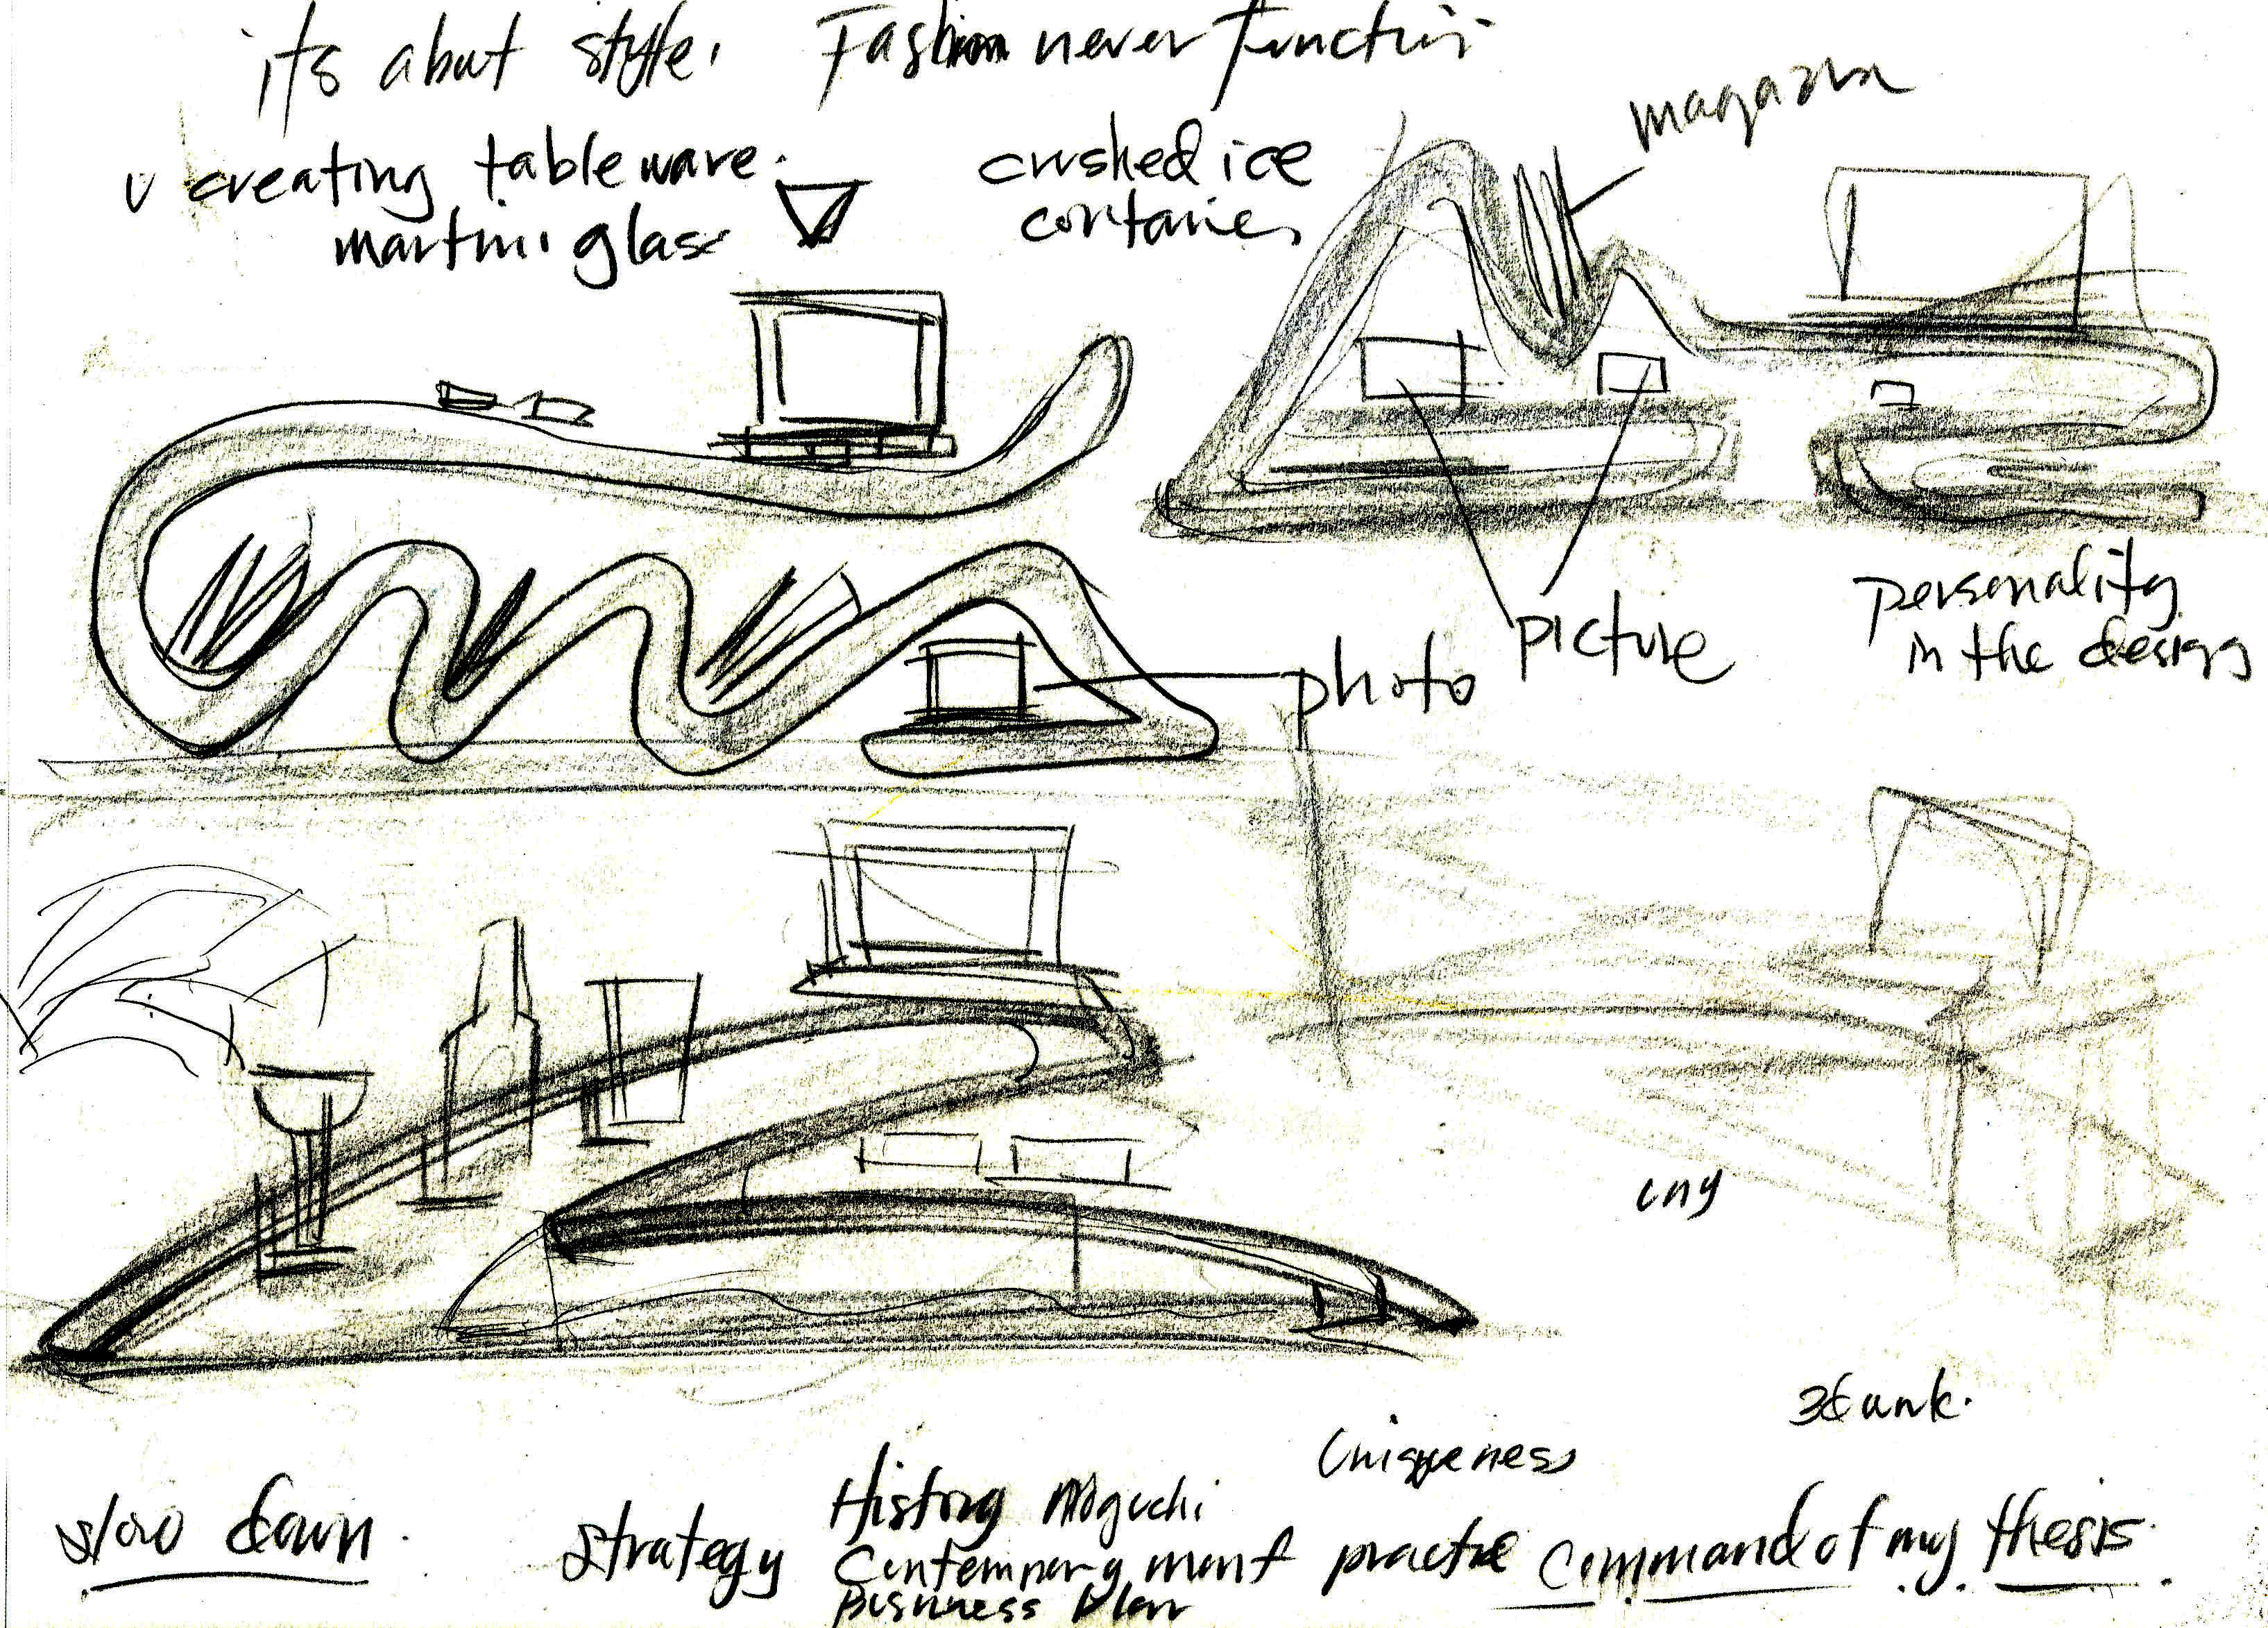 its about style. Fashion never Function
creating tableware.
martini glass
crushed ice
container
magazin
personality
in the design
picture
photo
any
Uniqueness
slow down.
strategy
History Noguchi
Contemporary
practice
command of my thesis.
Business Plan